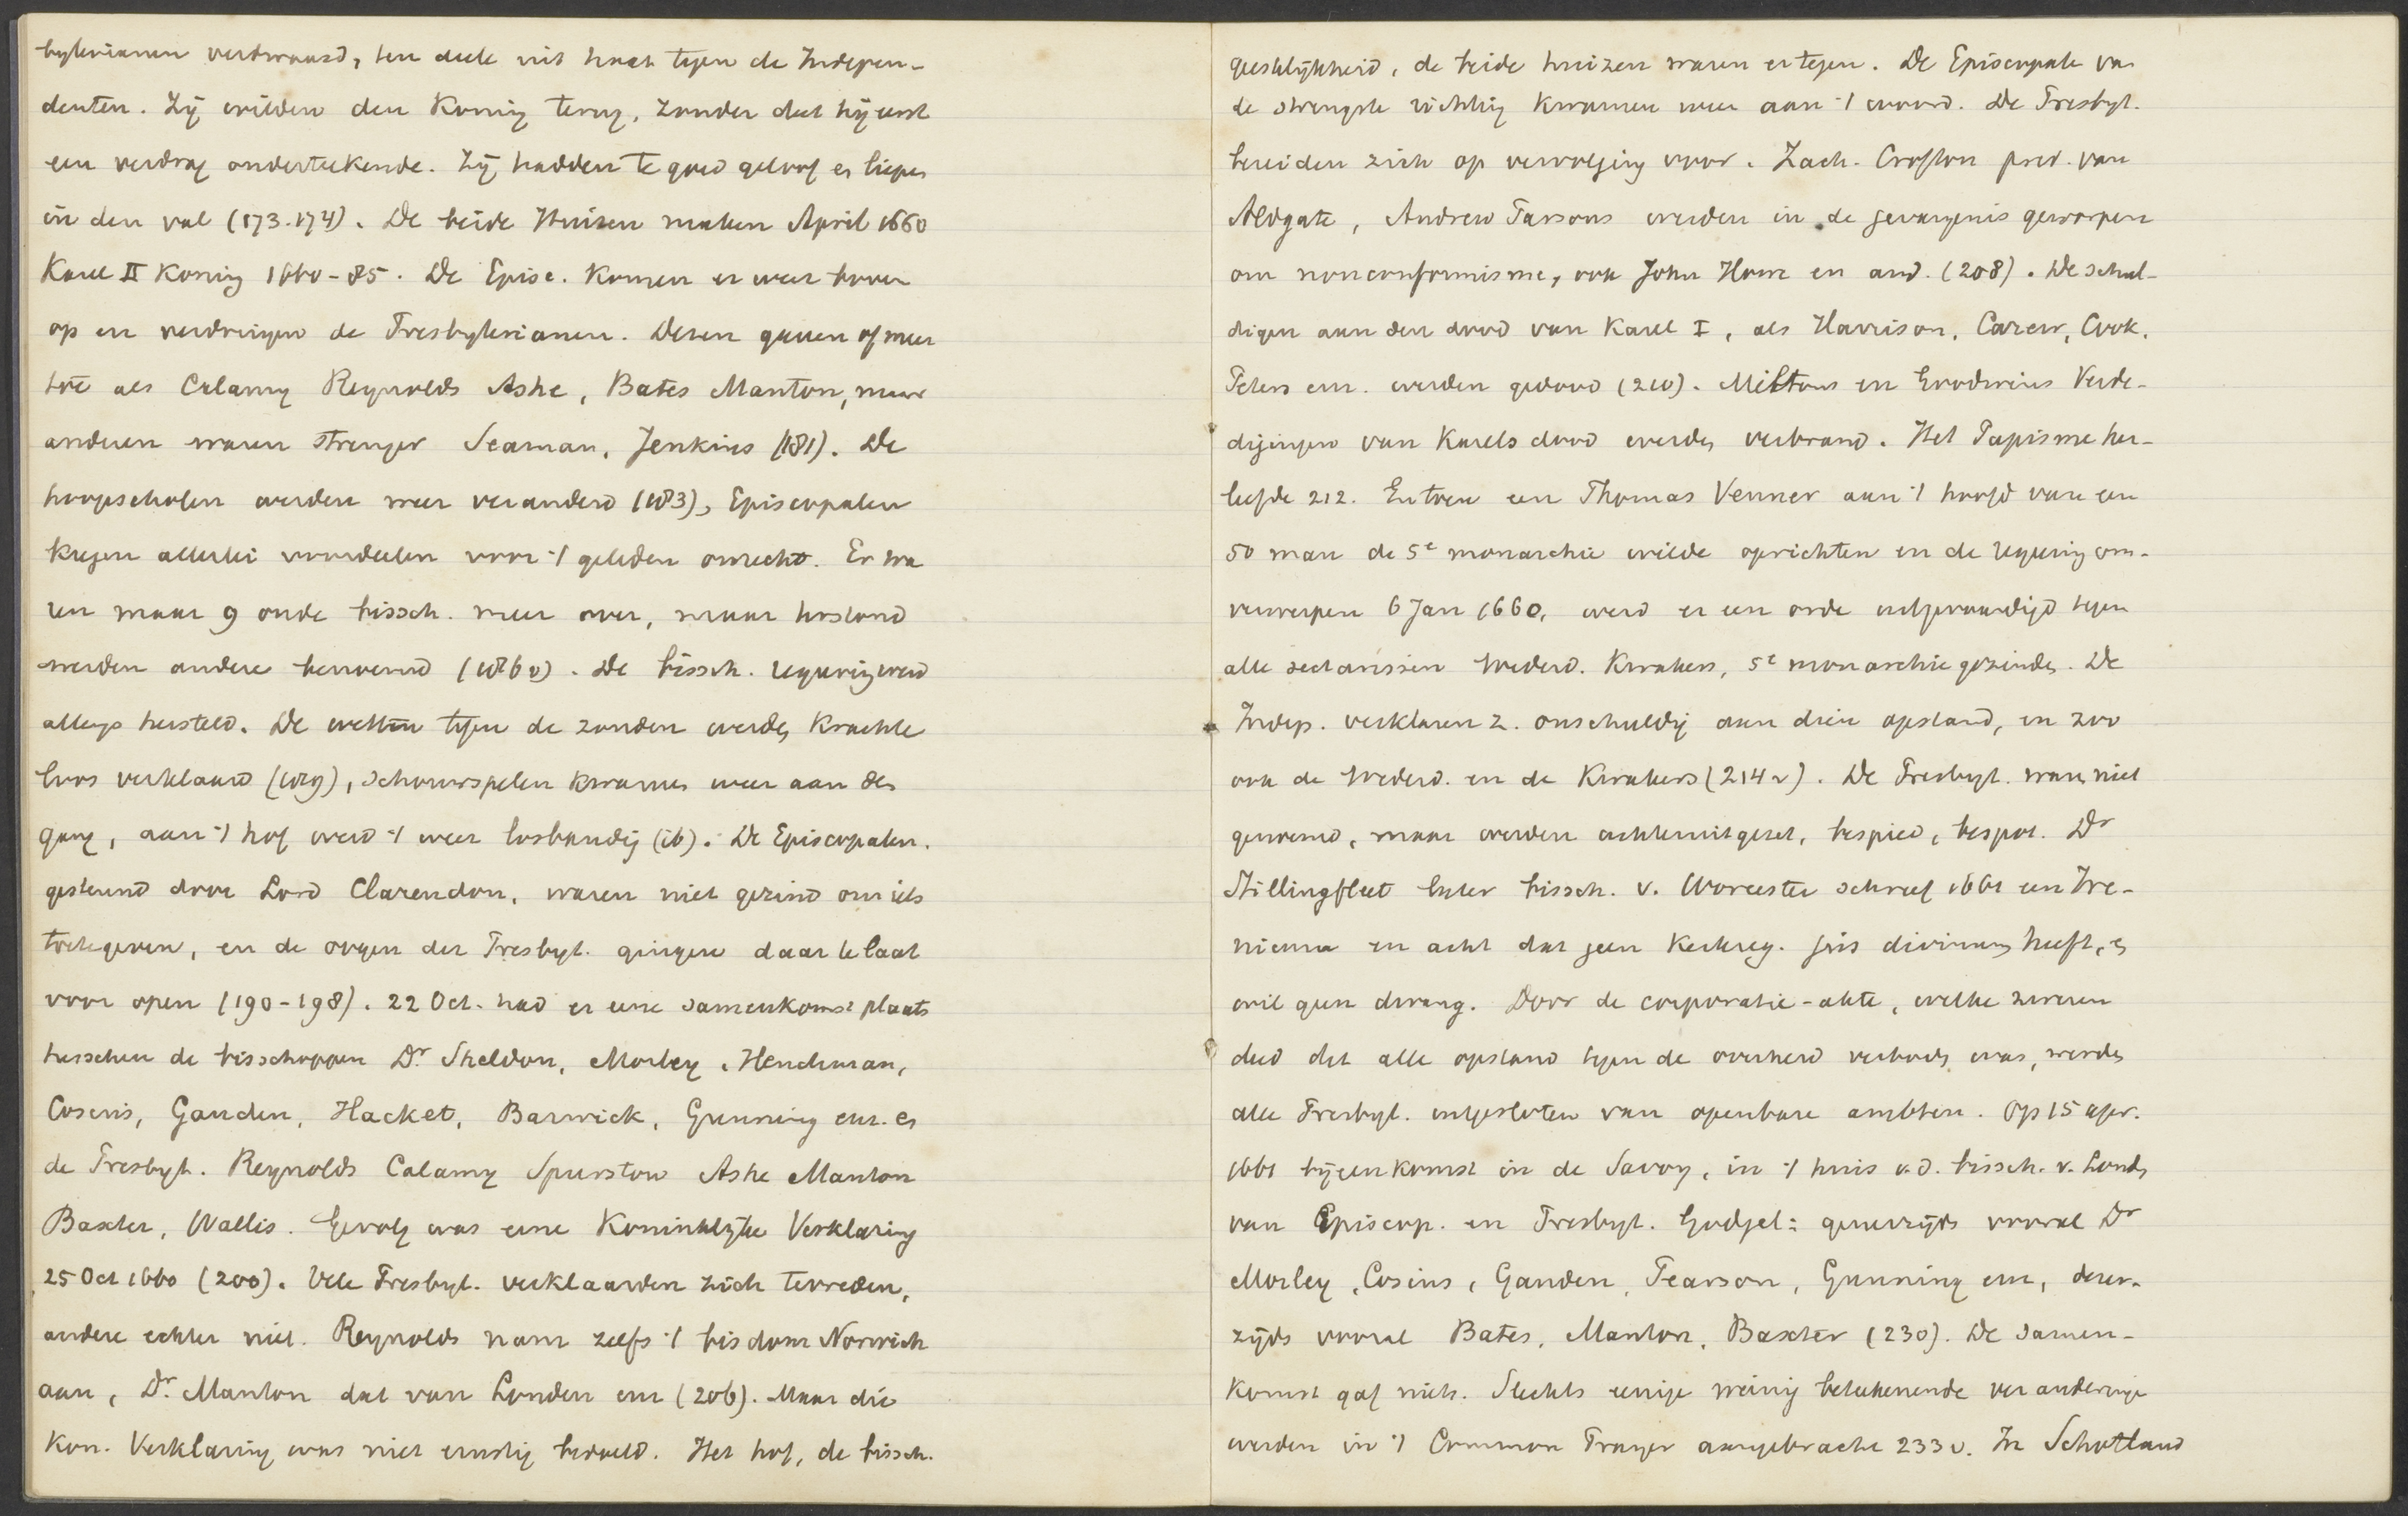 byterianen verdwaasd, ten deele uit haat tegen de Indepen-
denten. Zij wilden den Koning terug, zonder dat hij eerst
een verdrag onderteekende. Zij hadden te goed geloof en liepen
in den val (173.174). De beide Huizen maken April 1660
Karel II Koning 1660-85. De Episc. Komen er weer boven
op en verdringen de Presbyterianen. Dezen gaven of meer
toe als Calamy Reynolds Ashe, Bates Manton, maar
anderen waren strenger Seaman, Jenkins (181). De
hoogescholen werden weer veranderd (183), Episcopalen
kregen allerlei voordeelen voor 't geleden onrecht. Er wa
ren maar 9 oude bissch. meer over, maar hosland
werden andere benoemd (186v). De bissch. regering werd
allengs hersteld. De wetten tegen de zonden werden krachte
loos verklaard (189), schouwspelen kwamen weer aan den
gang, aan 't hof werd 't weer losbandig (ib). De Episcopalen.
gesteund door Lord Clarendon, waren niet gezind om iets
toetegeven, en de oogen der Presbyt. gingen daar te laat
voor open (190-198). 22 Oct. had er eene samenkomst plaats
tusschen de bisschoppen Dr. Sheldon, Morley, Henchman,
Cosens, Gauden, Hacket, Barwick, Gunning enz. en
de Presbyt. Reynolds Calamy Spurstow Ashe Manton
Baxter, Wallis. Gevolg was eene Koninklijke Verklaring
25 Oct 1660 (200). Vele Presbyt. verklaarden zich tevreden,
andere echter niet. Reynolds nam zelfs 't bisdom Norwich
aan, Dr. Manton dat van Londen enz (206). Maar die
Kon. Verklaring was niet ernstig bedoeld. Het hof, de bissch.
geestelijkheid, de beide huizen waren er tegen. De Episcopale van
de strengste richting kwamen weer aan 't woord. De Presbyt.
bereiden zich op vervolging voor. Zach. Crofton pred. van
Aldgate, Andrew Parsons werden in de gevangenis geworpen
om nonconformisme, ook John Howe en and. (208). De schul-
digen aan den dood van Karel I, als Harrison, Carew, Cook,
Peters enz. werden gedood (210). Miltons en Goodwins Verde-
digingen van Karels dood werden verbrand. Het Papisme her-
leefde 212. En toen een Thomas Venner aan 't hoofd van een
50 man de 5e monarchie wilde oprichten en de regering om-
verwerpen 6 Jan 1660, werd er een orde uitgevaardigd tegen
alle sectarissen Wederd. Kwakers, 5e monarchiegezinden. De
Indep. verklaren z. onschuldig aan dien opstand, en zoo
ook de Wederd. en de Kwakers (214v). De Presbyt. waren niet
genoemd, maar werden achteruitgezet, bespied, bespot. Dr
Stillingfleet later bissch. v. Worcester schreef 1661 een Ire-
nicum en acht dat geen Kerkreg. jus divinum heeft, en
wil geen dwang. Door de corporatie-akte, welke zweren
deed dat alle opstand tegen de overheid verboden was, werden
alle Presbyt. uitgesloten van openbare ambten. Op 15 apr.
1661 bijeenkomst in de Savoy, in 't huis v.d. bissch. v. Londen
van Episcop. en Presbyt. Godgel: generzijds vooral Dr
Morley, Cosins, Gauden, Pearson, Gunning enz, dezer-
zijds vooral Bates, Manton, Baxter (230). De samen-
komst gaf niets. Slechts eenige weinig beteekenende veranderingen
werden in 't Common Prayer aangebracht 233v. In Schotland